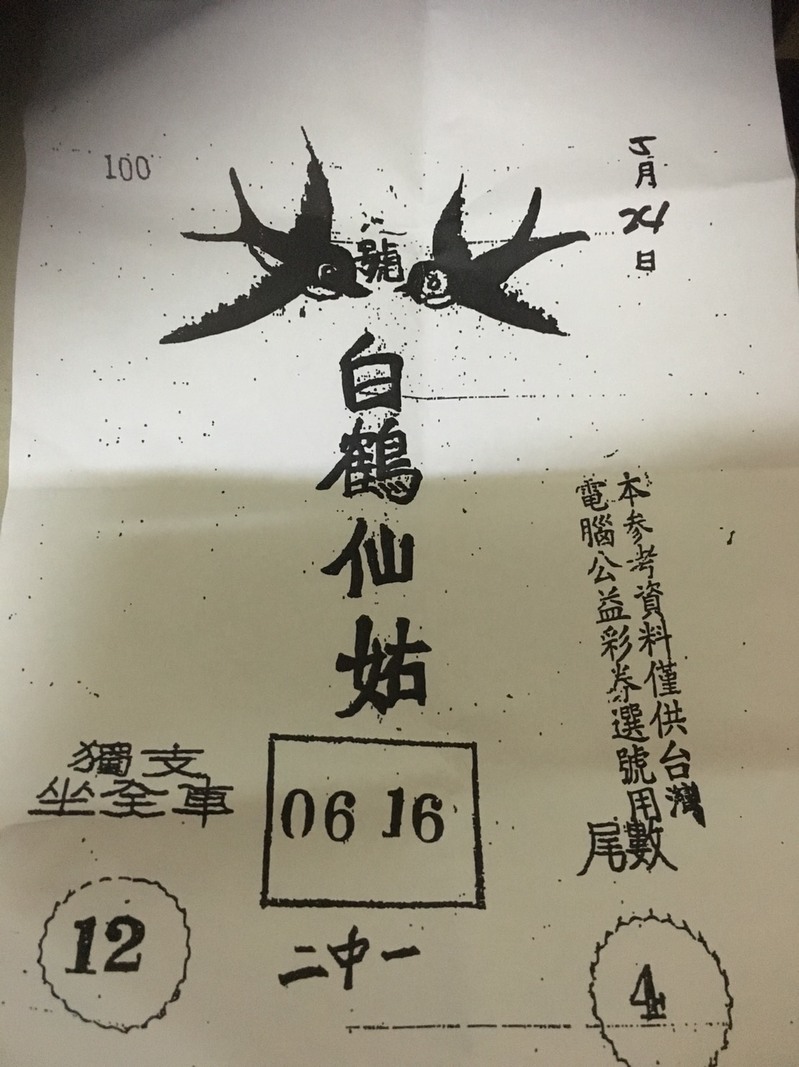 100
5月24日
號
白鶴仙姑
本参考資料僅供台灣
電腦公益彩券選號用
獨支
坐全車
12
06 16
二中一
尾數
4